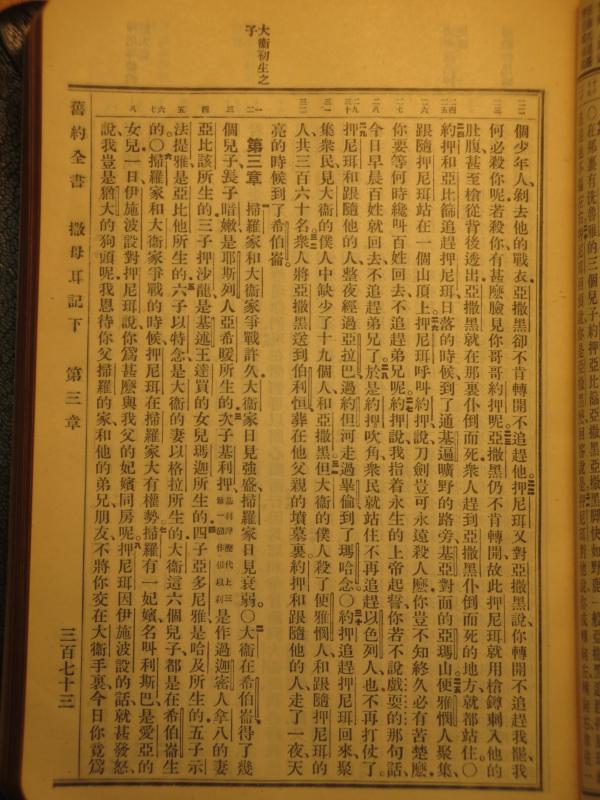 大衞初生之子
個少年人、剝去他的戰衣、亞撒黑卻不肯轉開不追趕他、押尼珥又對亞撒黑說、你轉開不追趕我罷、我
何必殺你呢、若殺你有甚麼臉見你哥哥約押呢、亞撒黑仍不肯轉開、故此押尼珥就用槍鐏刺入他的
肚腹、甚至槍從背後透出、亞撒黑就在那裏仆倒而死、衆人趕到亞撒黑仆倒而死的地方、就都站住、〇
約押和亞比篩追趕押尼珥、日落的時候、到了通基遍曠野的路旁、基亞對面的亞瑪山、便雅憫人聚集、
跟隨押尼珥站在一個山頂上、押尼珥呼叫約押說、刀劍豈可永遠殺人麼、你豈不知終久必有苦楚麼、
你要等何時纔叫百姓回去、不追趕弟兄呢、約押說、我指着永生的上帝起誓、你若不說戲耍的那句話、
今日早晨百姓就回去、不追趕弟兄了、於是約押吹角、衆民就站住、不再追趕以色列人、也不再打仗了、
押尼珥和跟隨他的人、整夜經過亞拉巴、過約但河、走過畢倫、到了瑪哈念、〇約押追趕押尼珥回來、聚
集衆民、見大衞的僕人中缺少了十九個人、和亞撒黑、但大衞的僕人殺了便雅憫人、和跟隨押尼珥的
人、共三百六十名、衆人將亞撒黑送到伯利恒、葬在他父親的墳墓裏、約押和跟隨他的人、走了一夜、天
亮的時候到了希伯崙、
第三章 掃羅家和大衞家爭戰許久、大衞家日見強盛、掃羅家日見衰弱、〇大衞在希伯崙得了幾
個兒子、長子暗嫩、是耶斯列人亞希暖所生的、次子基利押、是作過迦密人拿八的妻
亞比該所生的、三子押沙龍、是基述王達買的女兒瑪迦所生的、四子亞多尼雅、是哈及所生的、五子示
法提雅、是亞比他所生的、六子以特念、是大衞的妻以格拉所生的、大衞這六個兒子、都是在希伯崙生
的、〇掃羅家和大衞家爭戰的時候、押尼珥在掃羅家大有權勢、掃羅有一妃嬪、名叫利斯巴、是愛亞的
女兒、一日伊施波設對押尼珥說、你爲甚麼與我父的妃嬪同房呢、押尼珥因伊施波設的話、就甚發怒、
說、我豈是猶大的狗頭呢、我恩待你父掃羅的家、和他的弟兄、朋友、不將你交在大衞手裏、今日你竟爲
舊約全書 撒母耳記下 第三章 三百七十三